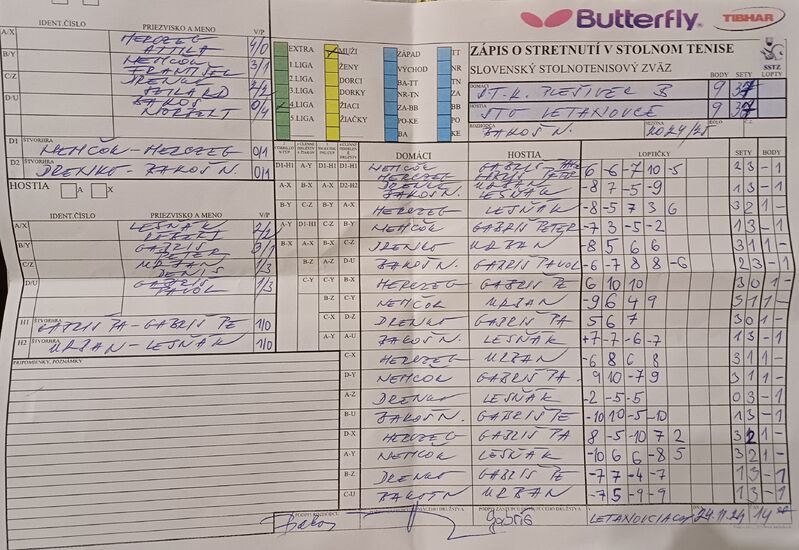 Butterfly
TIBHAR
ZÁPIS O STRETNUTÍ V STOLNOM TENISE
SLOVENSKÝ STOLNOTENISOVÝ ZVÄZ
SSTZ
DOMÁCI ST.K. PLEŠIVEC B
BODY 9 SETY 37 LOPTY
HOSTIA STO LETANOVCE 9 37
ROZHODCA BAKOŠ N. SEZÓNA 2024/25
IDENT.ČÍSLO PRIEZVISKO A MENO V/P
A/X HERCZEG ATTILA 4/0
B/Y NEMČOK FRANTIŠEK 3/1
C/Z DRENKO SZILARD 2/2
D/U BAKOŠ NORBERT 0/4
D1 ŠTVORHRA NEMČOK-HERCZEG 0/1
D2 ŠTVORHRA DRENKO-BAKOŠ N. 0/1
EXTRA
1.LIGA
2.LIGA
3.LIGA
4.LIGA
5.LIGA
MUŽI
ŽENY
DORCI
DORKY
ŽIACI
ŽIAČKY
ZÁPAD
VÝCHOD
BA-TT
NR-TN
ZA-BB
PO-KE
BA
TT
NR
TN
ZA
BB
PO
KE
HOSTIA A X
IDENT.ČÍSLO PRIEZVISKO A MENO V/P
A/X LEŠŇÁK 2/2
B/Y GABRIŠ PETER 3/1
C/Z URBAN DENIS 1/3
D/U GABRIŠ PAVOL 1/3
H1 ŠTVORHRA GABRIŠ PA-GABRIŠ PE 1/0
H2 ŠTVORHRA URBAN-LEŠŇÁK 1/0
PRIPOMIENKY, POZNÁMKY
DOMÁCI HOSTIA LOPTIČKY SETY BODY
D1-H1 A-Y D1-H1 D1-H1 NEMČOK HERCZEG GABRIŠ PAVOL GABRIŠ PETER 6 -6 -7 10 -5 2 3 -1
A-X B-X A-X D2-H2 DRENKO BAKOŠ N. URBAN LEŠŇÁK -8 7 -5 -9 1 3 -1
B-Y C-Z A-X HERCZEG LEŠŇÁK -8 -5 7 3 6 3 2 1 -
A-Y D1-H1 C-Z B-Y NEMČOK GABRIŠ PETER -7 3 -5 -2 1 3 -1
B-X A-X C-Z DRENKO URBAN -8 5 6 6 3 1 1 -
D-U BAKOŠ N. GABRIŠ PAVOL -6 -7 8 8 -6 2 3 -1
B-X HERCZEG GABRIŠ PE 6 10 10 3 0 1 -
C-Y NEMČOK URBAN -9 6 4 9 3 1 1 -
D-Z DRENKO GABRIŠ PA 5 6 7 3 0 1 -
A-U BAKOŠ N. LEŠŇÁK +7 -7 -6 -7 1 3 -1
C-X HERCZEG URBAN -6 8 6 8 3 1 1 -
D-Y NEMČOK GABRIŠ PA. 9 10 -7 9 3 1 1 -
A-Z DRENKO LEŠŇÁK -2 -5 -5 0 3 -1
B-U BAKOŠ N. GABRIŠ PE -10 10 -5 -10 1 3 -1
D-X HERCZEG GABRIŠ PA 8 -5 -10 7 2 3 2 1 -
A-Y NEMČOK LEŠŇÁK -10 6 6 -8 5 3 2 1 -
B-Z DRENKO GABRIŠ PE -7 7 -4 -7 1 3 -1
C-U BAKOŠ N URBAN -7 5 -9 -9 1 3 -1
PODPIS ROZHODCU
Bakoš
Gabriš
LETANOVCIACH 24.11.24 14